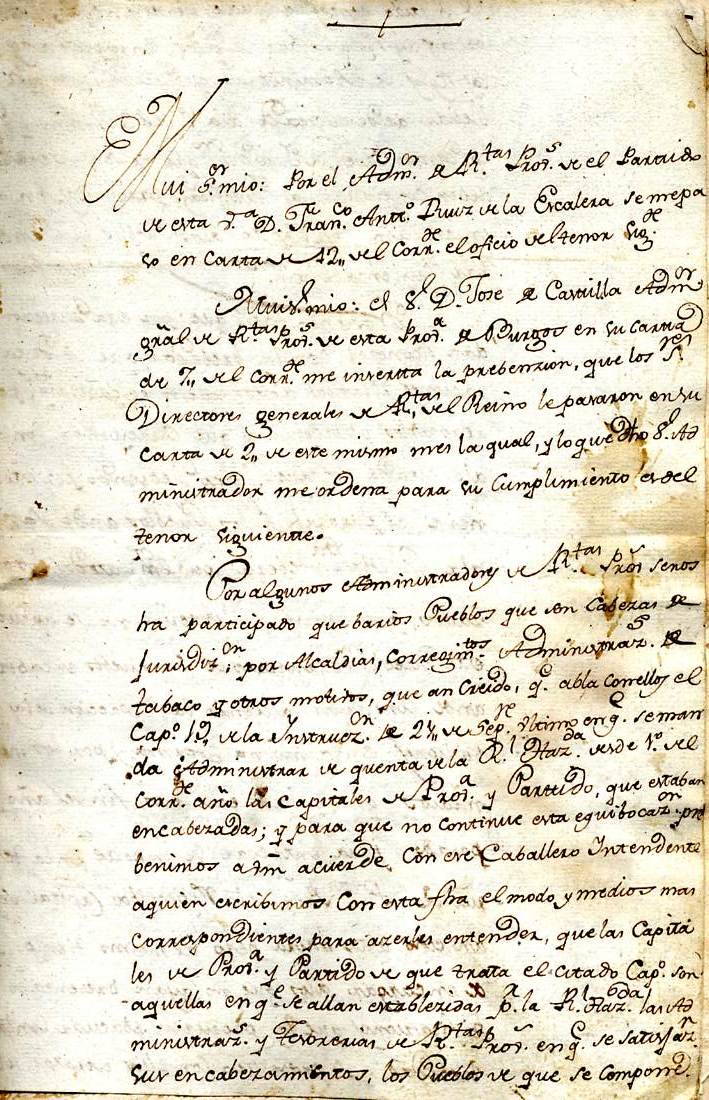 Mui S.or mio: Por el Adm.or de R.tas Prov.s de el Partido
de esta J.a D. Fran.co Ant.o Ruiz de la Escalera se me pa
so en Carta de 12,, del Corr.te el oficio del tenor sig.te
Mui S.r mio: el S.r D. Jose de Castilla Adm.or
gral de R.tas Prov.s de esta Prov.a de Burgos en su carta
de 7,, del Corr.te me inserta la prebenzion, que los S.res
Directores generales de R.tas del Reino le pasaron en su
Carta de 2,, de este mismo mes la qual, y lo que dho S.r Ad
ministrador me ordena para su Cumplimiento es del
tenor siguiente.
Por algunos Administradores de R.tas Prov.s se nos
ha participado que barios Pueblos que son Cabezas de
Jurisdiz.on, por Alcaldias, Corregim.tos Administraz.s de
tabaco y otros motivos, que an Creido, q.e abla con ellos el
Cap.o 19,, de la Instrucz.on de 21,, de Sep.re ultimo en q.e se man
da Administrar de quenta de la R.l Haz.da desde 1.o del
Corr.te año las Capitales de Prov.a y Partido, que estaban
encabezadas; y para que no continue esta equibocaz.on pre
benimos a Vm acuerde Con ese Caballero Intendente
aquien escribimos Con esta fha el modo y medios mas
correspondientes para azerles entender, que las Capita
les de Prov.a y Partido de que trata el Citado Cap.o son
aquellas en q.e se allan establezidas p.a la R.l Haz.da las Ad
ministraz.s y Tesorerias de R.tas Prov.s en q.e se satisfaz.n
sus encabezamientos, los Pueblos de que se componen.